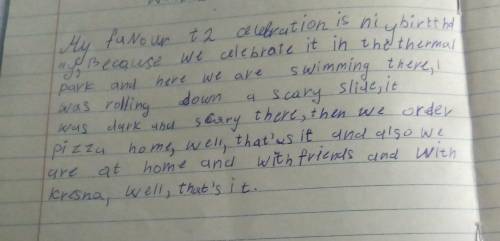 My favour t2 celebration is ni,birthd
ay, Because we celebrate it in the thermal
park and here we are swimming there, i
was rolling down a scary slide, it
was dark and scary there, then we order
pizza home, well, that's it and also we
are at home and with friends and with
kresna, well, that's it.